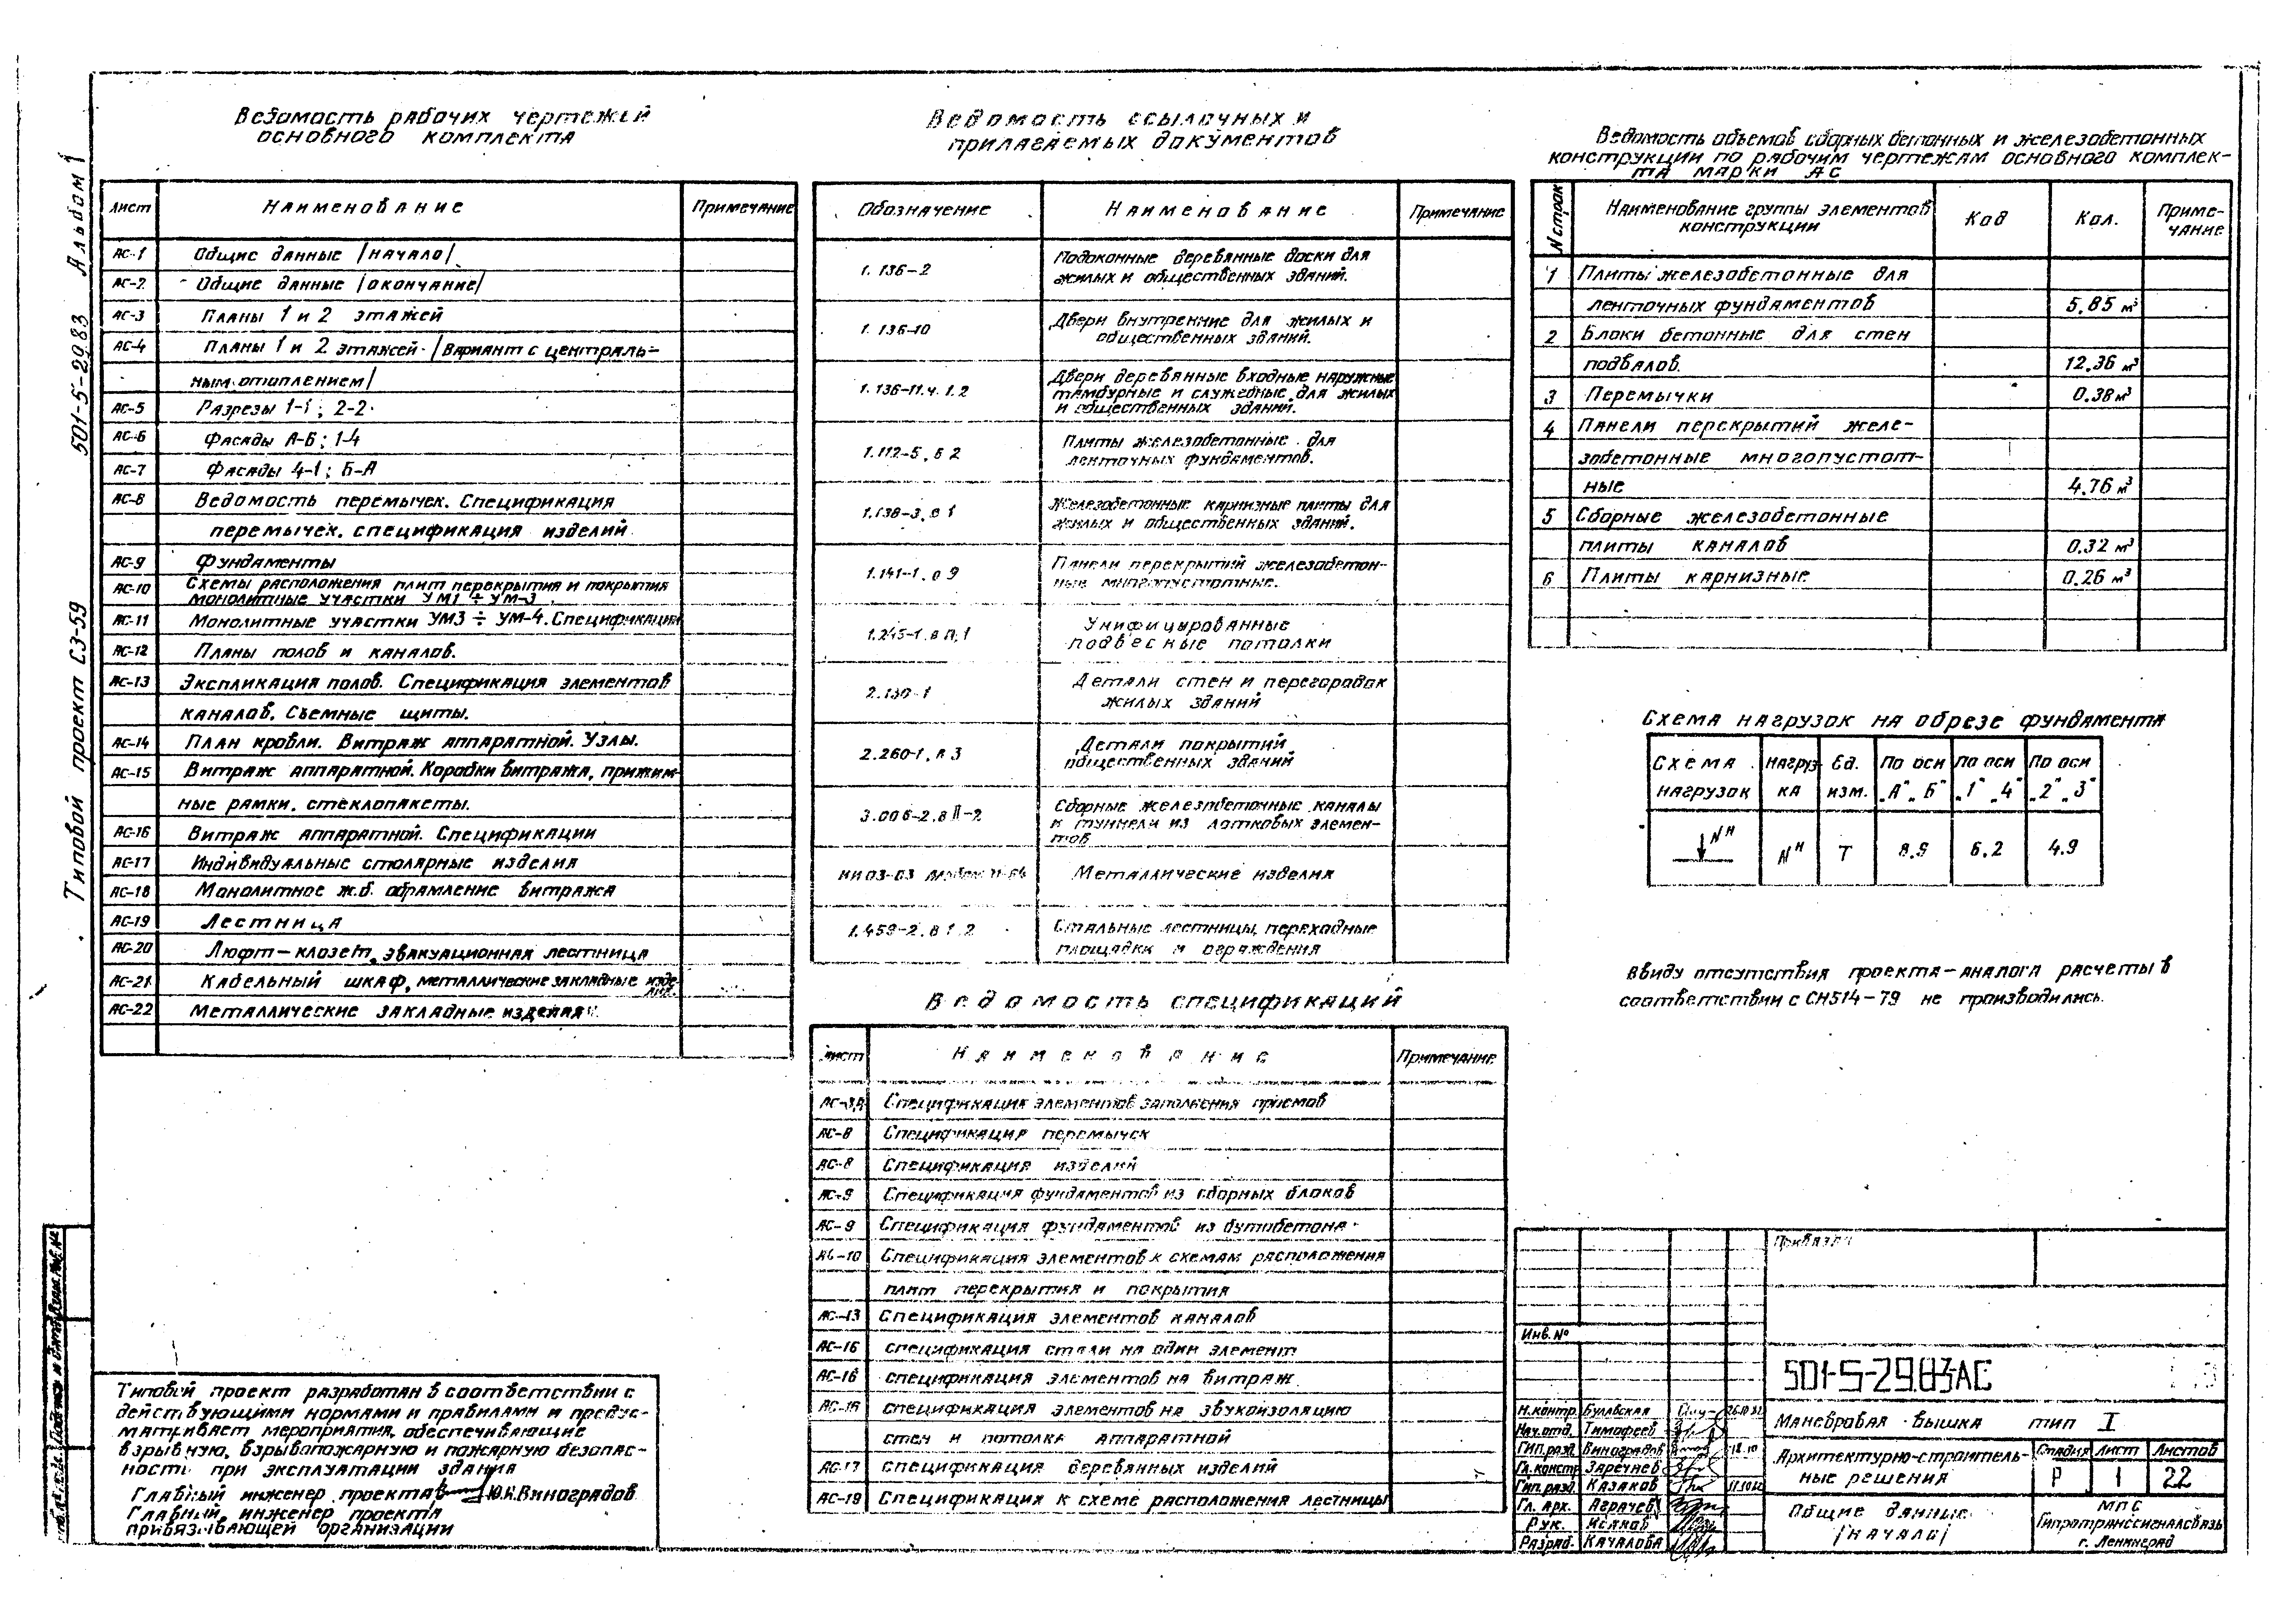 Типовой проект СЗ-59 501-5-29.83 Альбом 1
Ведомость рабочих чертежей
основного комплекта
Лист Наименование Примечание
АС-1 Общие данные /начало/
АС-2 Общие данные /окончание/
АС-3 Планы 1 и 2 этажей
АС-4 Планы 1 и 2 этажей /Вариант с централь-
ным отоплением/
АС-5 Разрезы 1-1; 2-2
АС-6 Фасады А-Б; 1-4
АС-7 Фасады 4-1; Б-А
АС-8 Ведомость перемычек. Спецификация
перемычек. спецификация изделий
АС-9 Фундаменты
АС-10 Схемы расположения плит перекрытия и покрытия
монолитные участки УМ1 ÷ УМ-3
АС-11 Монолитные участки УМ3 ÷ УМ-4. Спецификация
АС-12 Планы полов и каналов.
АС-13 Экспликация полов. Спецификация элементов
каналов. Съемные щиты.
АС-14 План кровли. Витраж аппаратной. Узлы.
АС-15 Витраж аппаратной. Коробки витража, прижим-
ные рамки, стеклопакеты.
АС-16 Витраж аппаратной. Спецификации
АС-17 Индивидуальные столярные изделия
АС-18 Монолитное ж.б. обрамление витража
АС-19 Лестница
АС-20 Люфт-клозет, эвакуационная лестница
АС-21 Кабельный шкаф, металлические закладные изде-
лия.
АС-22 Металлические закладные изделия
Типовой проект разработан в соответствии с
действующими нормами и правилами и предус-
матривает мероприятия, обеспечивающие
взрывную, взрывопожарную и пожарную безопас-
ность при эксплуатации здания
Главный инженер проекта Ю.Н.Виноградов
Главный инженер проекта
привязывающей организации
Ведомость ссылочных и
прилагаемых документов
Обозначение Наименование Примечание
1.136-2 Подоконные деревянные доски для
жилых и общественных зданий.
1.136-10 Двери внутренние для жилых и
общественных зданий.
1.136-11.ч.1.2 Двери деревянные входные наружные
тамбурные и служебные для жилых
и общественных зданий.
1.112-5, в 2 Плиты железобетонные для
ленточных фундаментов.
1.138-3, в 1 Железобетонные карнизные плиты для
жилых и общественных зданий.
1.141-1, в 9 Панели перекрытий железобетон-
ные многопустотные.
1.245-1. Унифицированные
подвесные потолки
2.130-1 Детали стен и перегородок
жилых зданий
2.260-1, в 3 Детали покрытий
общественных зданий
3.006-2.в II-2 Сборные железобетонные каналы
и туннели из лотковых элемен-
тов
ИИ 03-03 Металлические изделия
1.459-2. в 1.2 Стальные лестницы, переходные
площадки и ограждения
Ведомость спецификаций
Лист Наименование Примечание
Спецификация элементов заполнения проемов
АС-8 Спецификация перемычек
АС-8 Спецификация изделий
АС-9 Спецификация фундаментов из сборных блоков
АС-9 Спецификация фундаментов из бутобетона
АС-10 Спецификация элементов к схемам расположения
плит перекрытия и покрытия
АС-13 Спецификация элементов каналов
АС-16 спецификация стали на один элемент
АС-16 спецификация элементов на витраж
АС-16 спецификация элементов на звукоизоляцию
стен и потолка аппаратной
АС-17 спецификация деревянных изделий
АС-19 Спецификация к схеме расположения лестницы
Ведомость объемов сборных бетонных и железобетонных
конструкции по рабочим чертежам основного комплек-
та марки АС
N строк Наименование группы элементов Код Кол. Приме-
конструкции чание
1 Плиты железобетонные для
ленточных фундаментов 5.85 м³
2 Блоки бетонные для стен
подвалов. 12.36 м³
3 Перемычки 0.38 м³
4 Панели перекрытий желе-
зобетонные многопустот-
ные 4.76 м³
5 Сборные железобетонные
плиты каналов 0.32 м³
6 Плиты карнизные 0.26 м³
Схема нагрузок на обрезе фундамента
Схема Нагруз- Ед. По оси По оси По оси
нагрузок ка изм. „А" „Б" „1" „4" „2" „3"
Nн Nн Т 8.9 6.2 4.9
Ввиду отсутствия проекта-аналога расчеты в
соответствии с СН514-79 не производились.
Привязан
Инв. №
501-5-29.83АС
Н.контр. Булавская
Нач.отд. Тимофеев
ГИП.разд. Виноградов
Гл.констр. Заречнев
Гип.разд. Казаков
Гл. арх. Аграчев
Рук. Исаков
Разраб. Качалова
Маневровая вышка тип I
Архитектурно-строитель-
ные решения
Стадия Лист Листов
Р 1 22
Общие данные
/начало/
МПС
Гипротранссигналсвязь
г. Ленинград